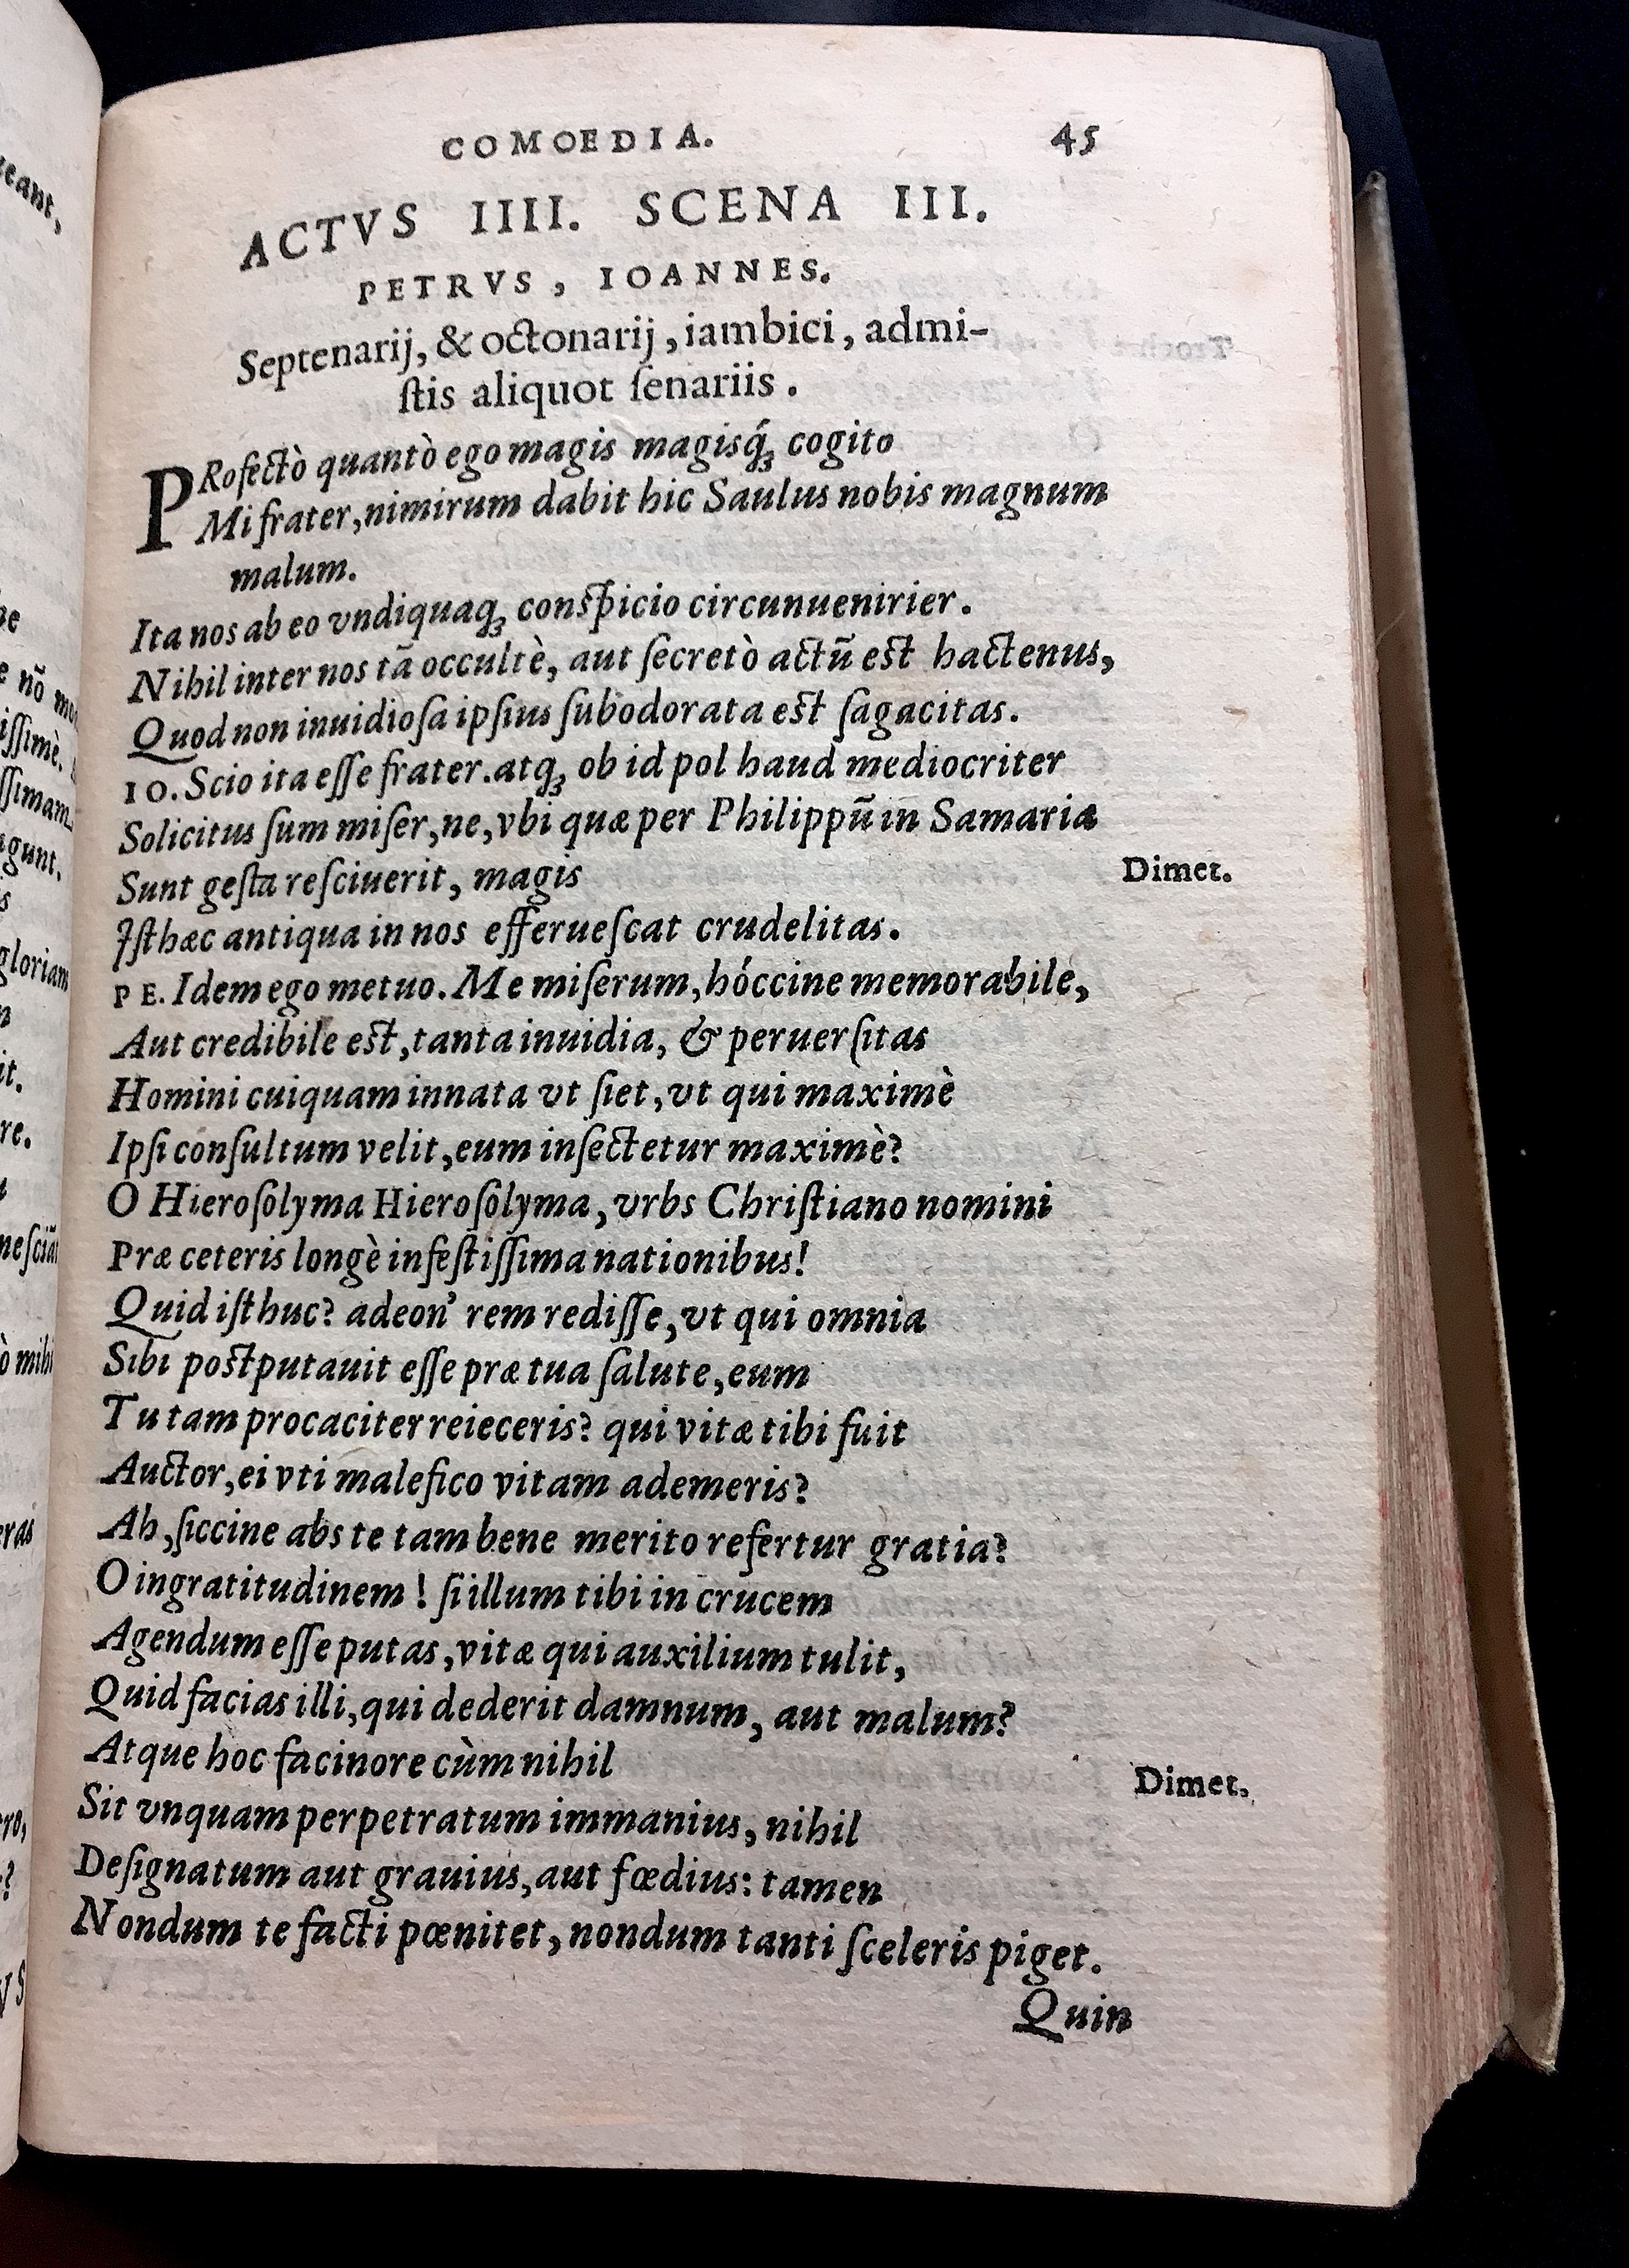 COMOEDIA. 45
ACTVS IIII. SCENA III.
PETRVS, IOANNES.
Septenarij, & octonarij, iambici, admi-
ſtis aliquot ſenariis.
PRofectò quantò ego magis magisq́; cogito
Mi frater, nimirum dabit hic Saulus nobis magnum
malum.
Ita nos ab eo vndiquaq; conſpicio circunuenirier.
Nihil inter nos tā occultè, aut ſecretò actū eſt hactenus,
Quod non inuidioſa ipſius ſubodorata eſt ſagacitas.
IO. Scio ita eſſe frater. atq; ob id pol haud mediocriter
Solicitus ſum miſer, ne, vbi quæ per Philippū in Samaria
Sunt geſta reſciuerit, magis
Dimet.
Iſthæc antiqua in nos efferueſcat crudelitas.
PE. Idem ego metuo. Me miſerum, hóccine memorabile,
Aut credibile eſt, tanta inuidia, & peruerſitas
Homini cuiquam innata vt ſiet, vt qui maximè
Ipſi conſultum velit, eum inſectetur maximè?
O Hieroſolyma Hieroſolyma, vrbs Chriſtiano nomini
Præ ceteris longè infeſtiſſima nationibus!
Quid iſthuc? adeon' rem rediſſe, vt qui omnia
Sibi poſtputauit eſſe præ tua ſalute, eum
Tu tam procaciter reieceris? qui vitæ tibi fuit
Auctor, ei vti malefico vitam ademeris?
Ah, ſiccine abs te tam bene merito refertur gratia?
O ingratitudinem! ſi illum tibi in crucem
Agendum eſſe putas, vitæ qui auxilium tulit,
Quid facias illi, qui dederit damnum, aut malum?
Atque hoc facinore cùm nihil
Dimet.
Sit vnquam perpetratum immanius, nihil
Deſignatum aut grauius, aut fœdius: tamen
Nondum te facti pœnitet, nondum tanti ſceleris piget.
Quin